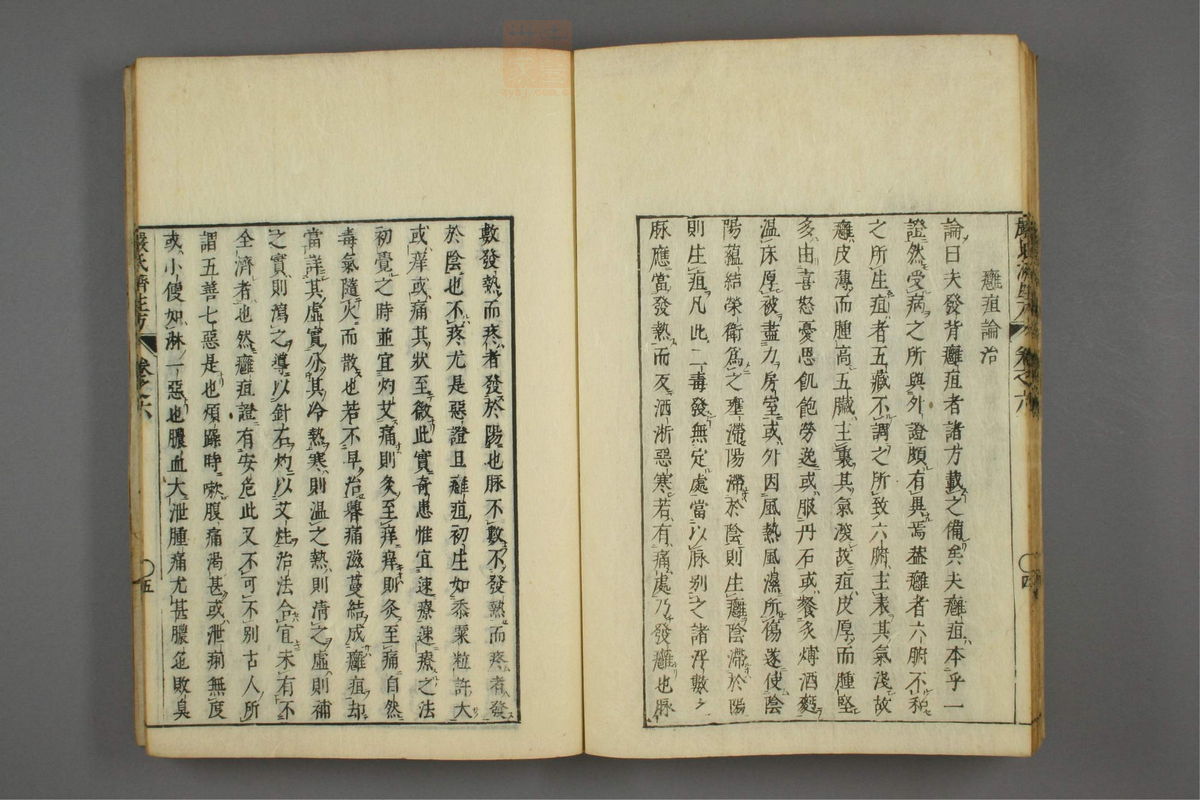 嚴氏濟生方 卷之六 ○四
癰疽論治
論曰夫發背癰疽者諸方載之備矣夫癰疽本乎一
證然受病之所與外證頗有異焉葢癰者六腑不和
之所生疽者五藏不調之所致六腑主表其氣淺故
癰皮薄而腫高五臟主裏其氣深故疽皮厚而腫堅
多由喜怒憂思飢飽勞逸或服丹石或餐炙煿酒麪
温床厚被盡力房室或外因風熱風濕所傷遂使陰
陽蘊結榮衛爲之壅滯陽滯於陰則生癰陰滯於陽
則生疽凡此二毒發無定處當以脉别之諸浮數之
脉應當發熱而反洒淅惡寒若有痛處乃發癰也脉
數發熱而疼者發於陽也脉不數不發熱而疼者發
於陰也不疼尤是惡證且癰疽初生如黍粟粒許大
或痒或痛其狀至微此實奇患惟宜速療速療之法
初覺之時並宜灼艾痛則灸至痒痒則灸至痛自然
毒氣隨火而散也若不早治礬痛滋蔓結成癰疽却
當詳其虛實分其冷熱寒則温之熱則清之虛則補
之實則瀉之導以針石灼以艾炷治法合宜未有不
全濟者也然癰疽證有安危此又不可不别古人所
謂五善七惡是也煩躁時嗽腹痛渴甚或泄痢無度
或小便如淋一惡也膿血大泄腫痛尤甚膿色敗臭
嚴氏濟生方 卷之六 ○五